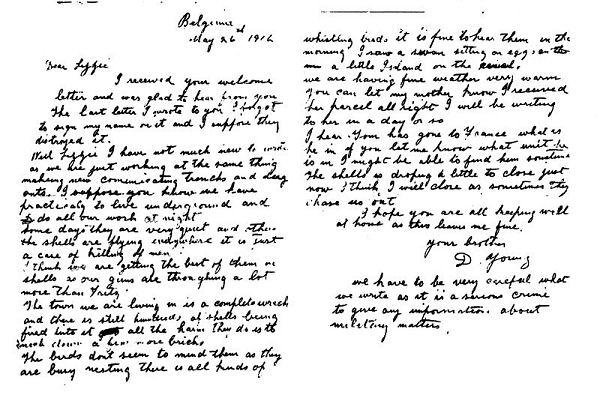 Belgium
May 26th 1916
Dear Lizzie
I received your welcome
letter and was glad to hear from you
The last letter I wrote to you I forgot
to sign my name on it and I suppose they
distroyed it.
Well Lizzie I have not much new to write
as we are just working at the same thing
making new comunicating trenchs and dug
outs. I suppose you know we have
practicaly to live underground and
do all our work at night
some days they are very quiet and others
the shells are flying everywhere it is just
a case of killing of men
I think we are getting the best of them in
shells as our guns are throughing a lot
more than Fritz
The town we are living in is a complete wreck
and there is still hundreds of shells being
fired into it all the harm they do is to
knock down a few more bricks
The birds dont seem to mind them as they
are busy nesting there is all kinds of
whistling birds it is fine to hear them in the
morning I saw a swan setting on eggs on the
on a little Island on the
we are having fine weather very warm
you can let my mother know I received
her parcel all right I will be writing
to her in a day or so
I hear Tom has gone to France what is
he in if you let me know what unit he
is in I might be able to find him sometime
The shells is droping a little to close just
now I think I will close as sometimes they
chase us out
I hope you are all keeping well
at home as this leaves me fine.
your brother
D. Young
we have to be very careful what
we write as it is a serious crime
to give any information about
military matters.